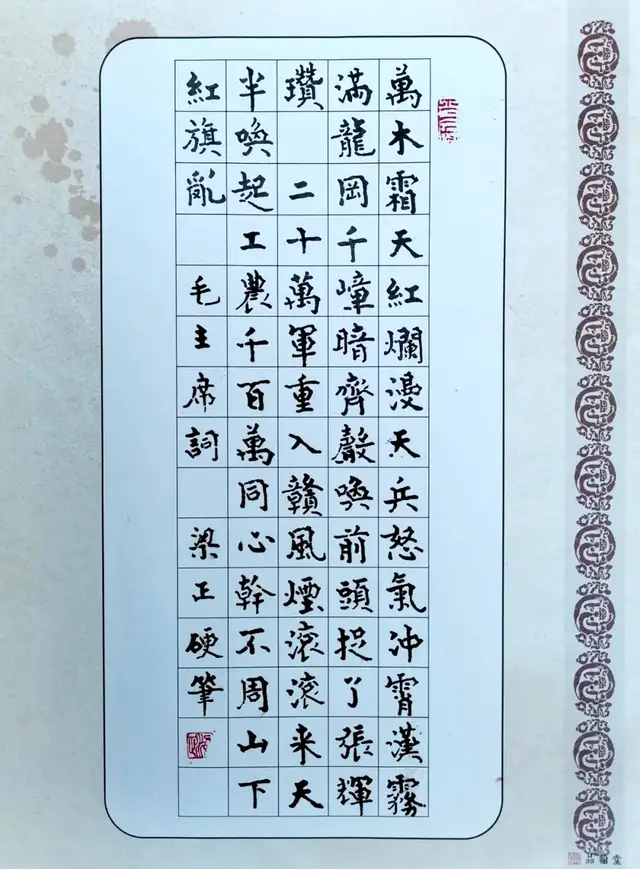 萬木霜天紅爛漫天兵怒氣沖霄漢霧
滿龍岡千嶂暗齊聲喚前頭捉了張輝
瓚 二十萬軍重入贛風煙滾滾来天
半喚起工農千百萬同心幹不周山下
紅旗亂 毛主席詞 梁正硬筆